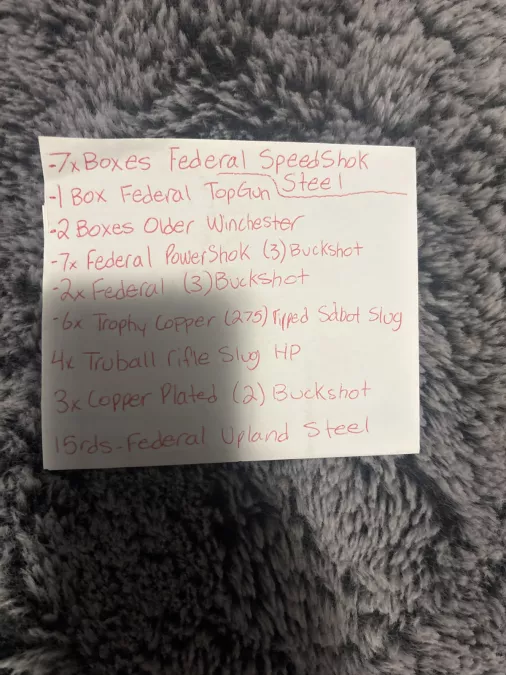 -7x Boxes Federal SpeedShok
Steel
-1 Box Federal TopGun
-2 Boxes Older Winchester
-7x Federal PowerShok (3) Buckshot
-2x Federal (3) Buckshot
-6x Trophy Copper (275) Tipped Sabot Slug
4x Truball rifle Slug HP
3x Copper Plated (2) Buckshot
15rds-Federal Upland Steel